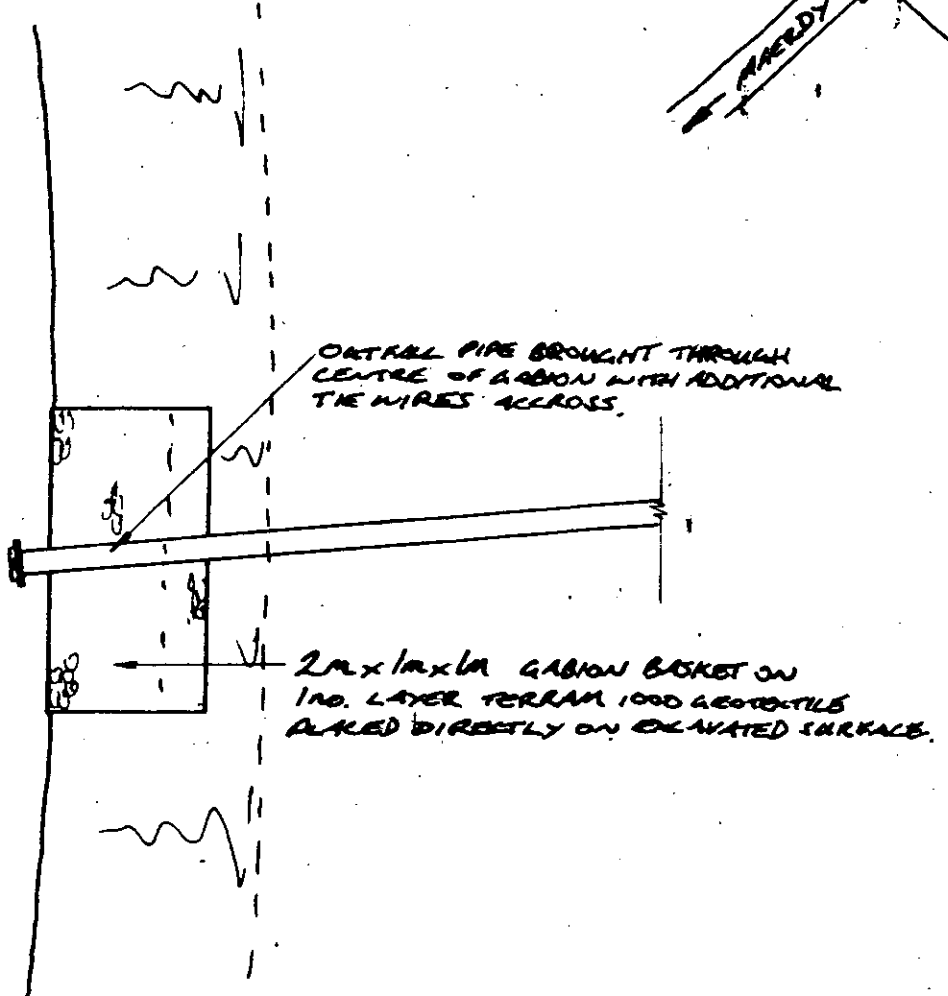 MAERDY
OUTFALL PIPE BROUGHT THROUGH
CENTRE OF GABION WITH ADDITIONAL
TIE WIRES ACCROSS.
2m x 1m x 1m GABION BASKET ON
1NO. LAYER TERRAM 1000 GEOTEXTILE
PLACED DIRECTLY ON EXCAVATED SURFACE.